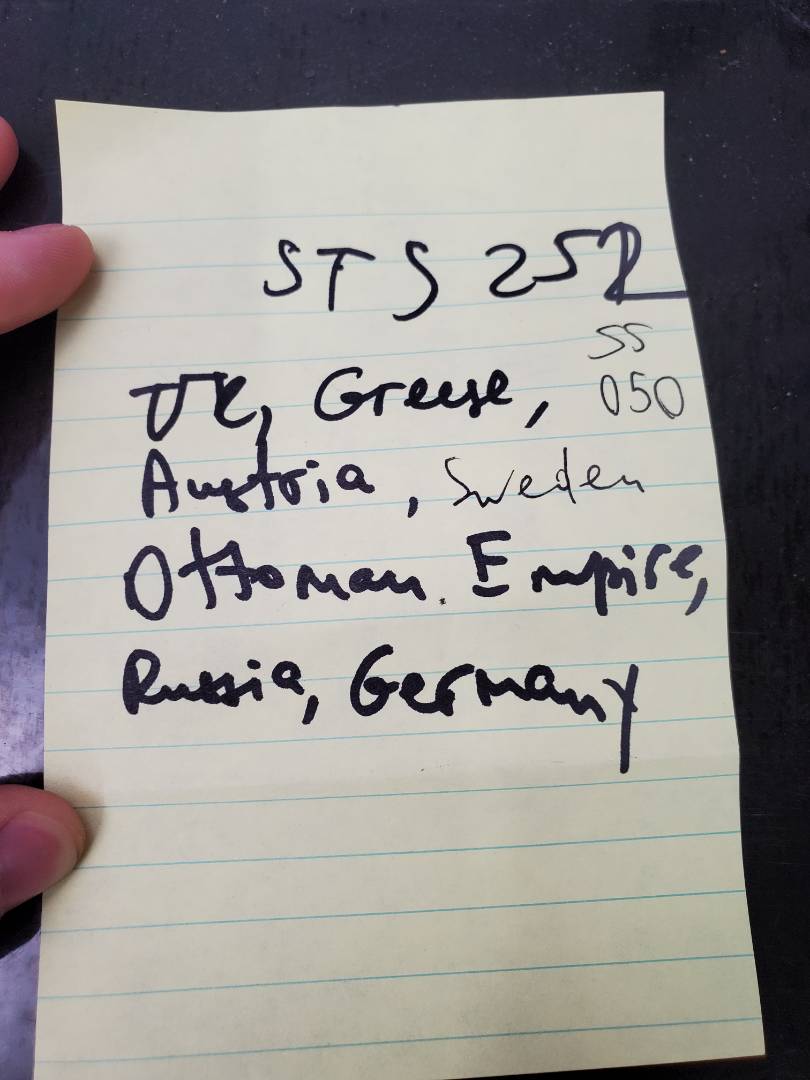 STS 252
SS
050
UK, Greese,
Austria, Sweden
Ottoman Empire,
Russia, Germany